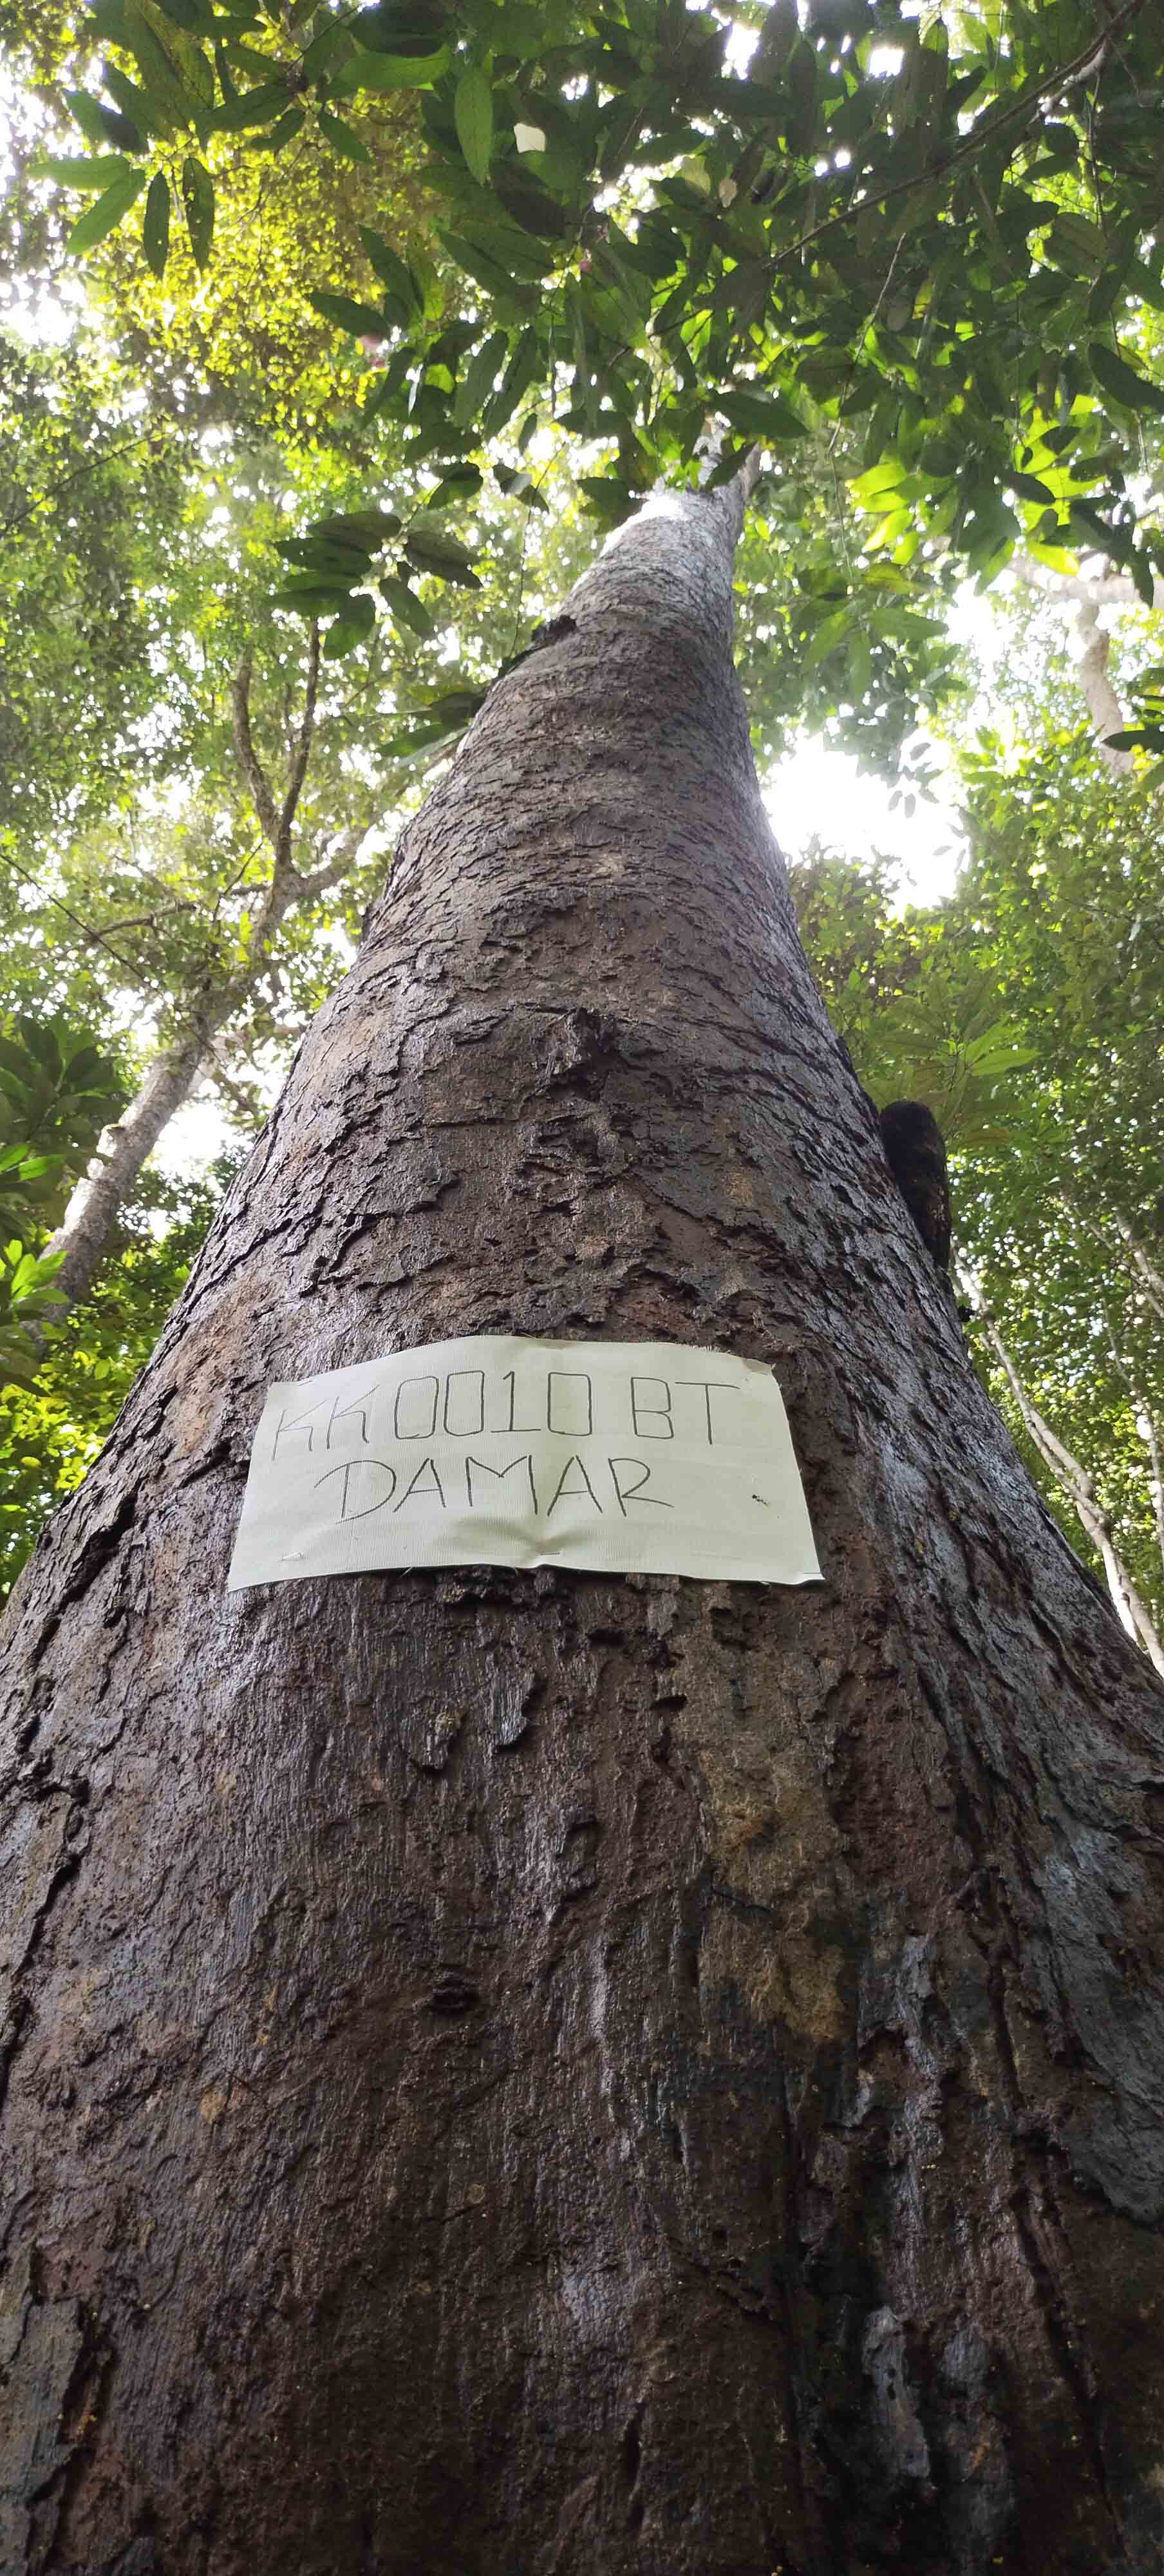 KK0010 BT
DAMAR